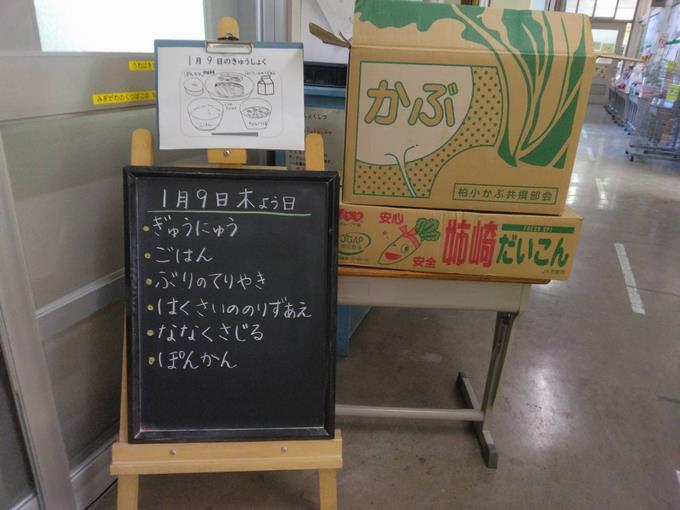 1月9日のきゅうしょく
ごはん
うわばき
みぎがわのくつばこの
1月9日木よう日
ぎゅうにゅう
ごはん
ぶりのてりやき
はくさいののりずあえ
ななくさじる
ぽんかん
かぶ
柏小かぶ共撰部会
安心
安全
JGAP
姉崎だいこん
FRESH UP!